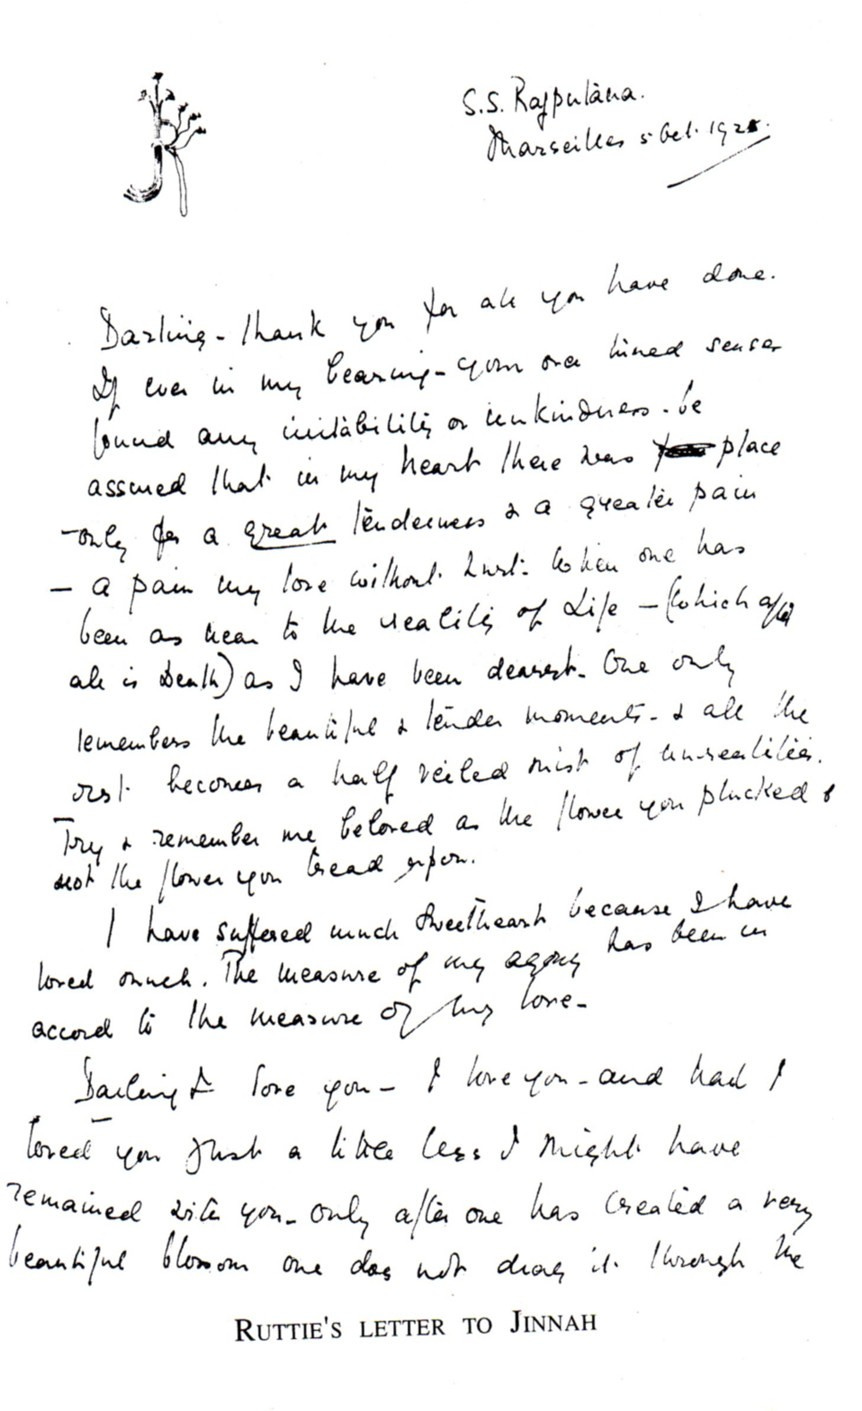 S.S. Rajputana.
Marseilles 5 Oct. 1928.
Darling – thank you for all you have done.
If ever in my bearing – your over tuned senses
found any irritability or unkindness – be
assured that in my heart there was place
– only for a great tenderness & a greater pain
– a pain my love without hurt. When one has
been as near to the reality of Life – (which after
all is Death) as I have been dearest. One only
remembers the beautiful & tender moments – & all the
rest becomes a half veiled mist of unrealities.
Try & remember me beloved as the flower you plucked &
not the flower you tread upon.
I have suffered much Sweetheart because I have
loved much. The measure of my agony has been in
accord to the measure of my love –
Darling I love you – I love you – and had I
loved you just a little less I might have
remained with you – only after one has created a very
beautiful blossom one does not drag it through the
RUTTIE'S LETTER TO JINNAH